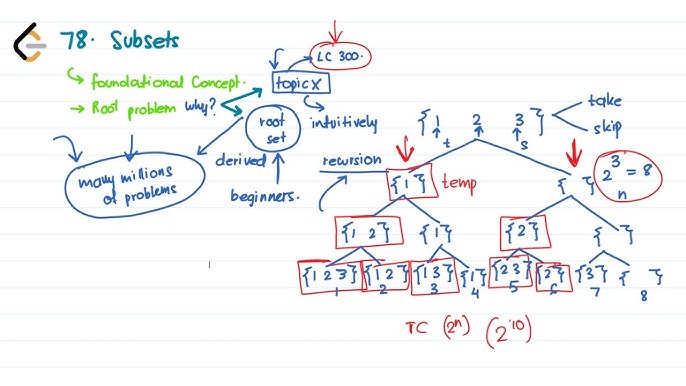 78. Subsets
LC 300.
foundational Concept.
topic X
→ Root problem why?
root set
intuitively
many millions of problems
derived
beginners.
recursion
{1 2 3}
t
s
take
skip
2^3 = 8
n
{1}
temp
{ }
{1 2}
{1}
{2}
{ }
{1 2 3}
{1 2}
{1 3}
{1}
{2 3}
{2}
{3}
{ }
1
2
3
4
5
6
7
8
TC (2^n) (2^10)